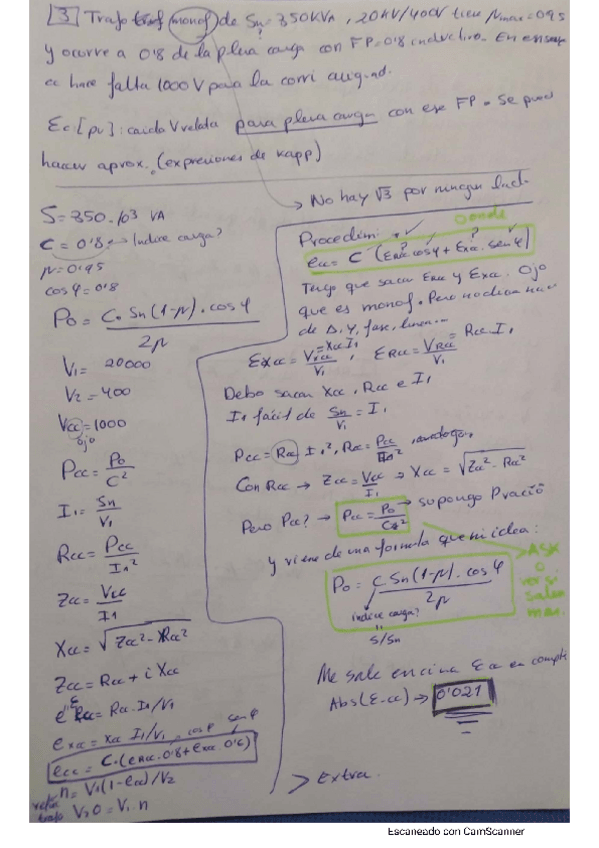 3 Trafo monof de Sn = 350KVA, 20KV/400V tien μmax=0'95
y ocurre a 0'8 de la plena carga con FP=0'8 inductivo. En ensayo
cc hace falta 1000V para la corri asignad.
Ec [pu]: caida V relata para plena carga con ese FP. Se pued
hacer aprox. (expresiones de Kapp)
→ No hay √3 por ningun lado.
S = 350·10³ VA
C = 0'8 → Indice carga?
μ = 0'95
cos φ = 0'8
Po = C·Sn(1-μ)·cos φ / 2μ
V1 = 20000
V2 = 400
Vcc = 1000
ojo
Pcc = Po/C²
I1 = Sn/V1
Rcc = Pcc/I1²
Zcc = Vcc/I1
Xcc = √Zcc²-Rcc²
Zcc = Rcc + i Xcc
eRcc = Rcc·I1/V1
excc = Xcc I1/V1 cos φ sen φ
ecc = C·(eRcc·0'8+excc·0'6)
n = V1(1-ecc)/V2
V20 = V1·n
Procedim: ✓
Donde
ecc = C (ERcc cos φ + Excc·sen φ)
Tengo que sacar ERcc y Excc. Ojo
que es monof. Pero no dicen nada
de Δ, Y, fase, linea...
EXcc = VXcc/V1 = Xcc I1, ERcc = VRcc/V1 = Rcc·I1
Debo sacar Xcc, Rcc e I1
I1 fácil de Sn/V1 = I1
Pcc = Rcc I1², Rcc = Pcc/I1²
Con Rcc → Zcc = Vcc/I1 → Xcc = √Zcc²-Rcc²
Pero Pcc? → Pcc = Po/C² → supongo
y viene de una formula que ni idea:
Po = C Sn(1-μ)·cos φ / 2μ
indice carga?
S/Sn
→ ASK
o
ver si
sale
Me sale encina Ecc en
Abs(E-cc) → 0'021
> Extra.
Escaneado con CamScanner